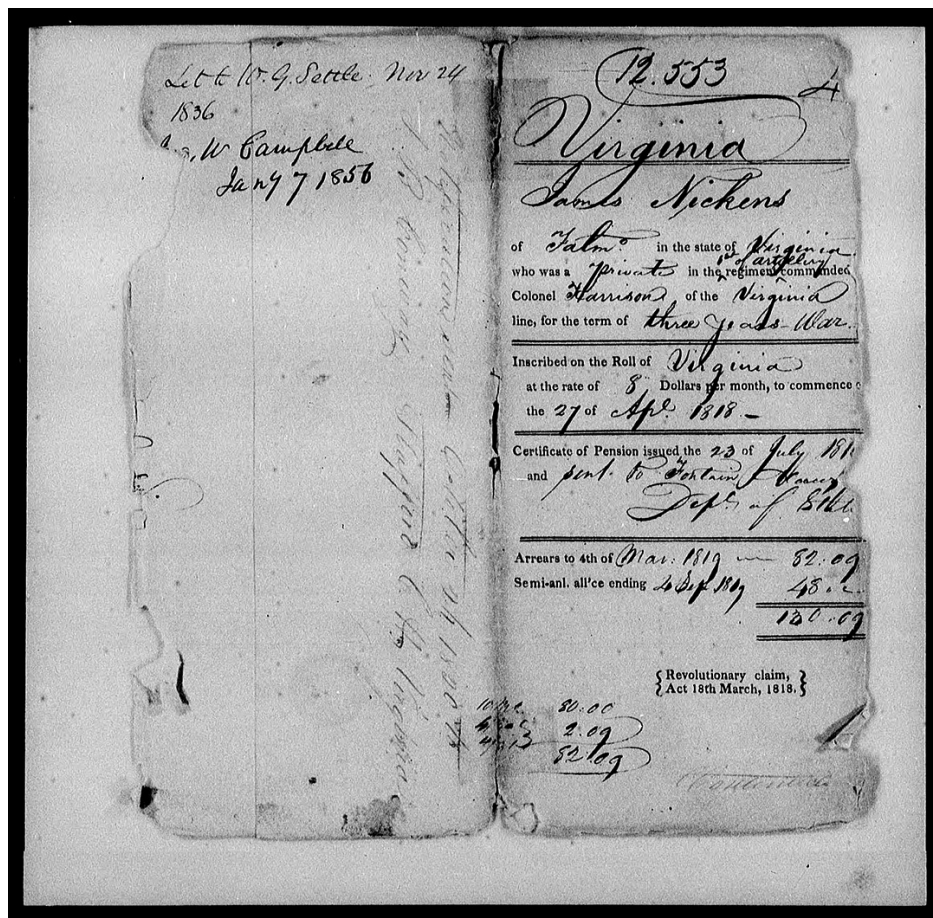 Let to W. G. Settle Nov 24
1836
W Campbell
Jany 7 1856
12.553
4
Virginia
James Nickens
of Falmo. in the state of Virginia
1st of artillery
who was a private in the regiment commanded
Colonel Harrison of the Virginia
line, for the term of three years - War.
Inscribed on the Roll of Virginia
at the rate of 8 Dollars per month, to commence o
the 27 of Apl. 1818 -
Certificate of Pension issued the 23 of July 181
and sent to Fontain
Dept. of State
Arrears to 4th of Mar. 1819 82.09
Semi-anl. all'ce ending 4 Sep 1819 48
130.09
{Revolutionary claim,
Act 18th March, 1818.}
80.00
2.09
82.09
Stafford Virginia